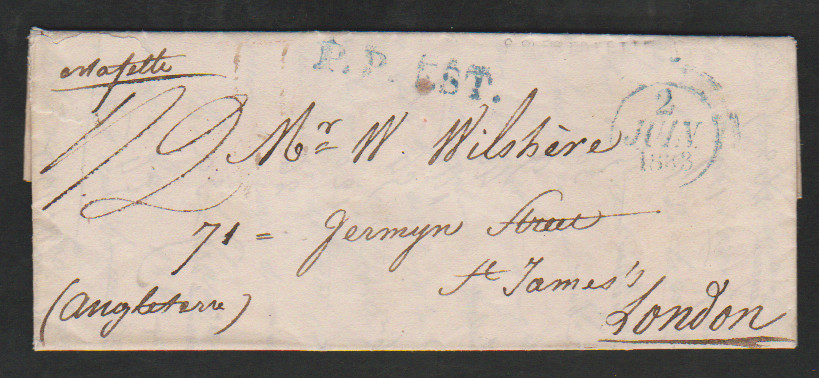 estafette
P. P. EST.
2
JUIN
1838
12
Mr W. Wilshère
71 = Jermyn Street
St James's
(Angleterre)
London